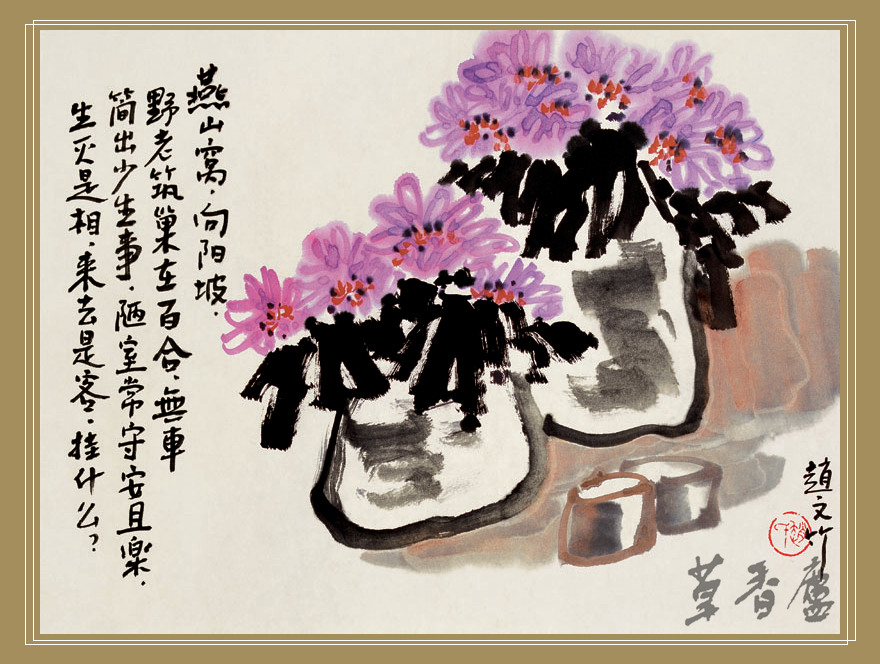 燕山窩·向阳坡·
野老筑巢在百合、無車
简出少生事·陋室常守安且樂·
生灭是相·来去是客·挂什么？
趙文竹
草香廬